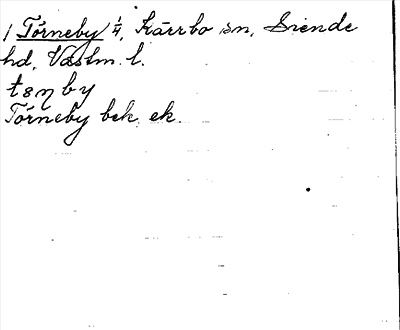 1 Törneby 1/4, Kärrbo sn, Siende
hd, Västm. l.
tɵηby
Törneby bek. ek.